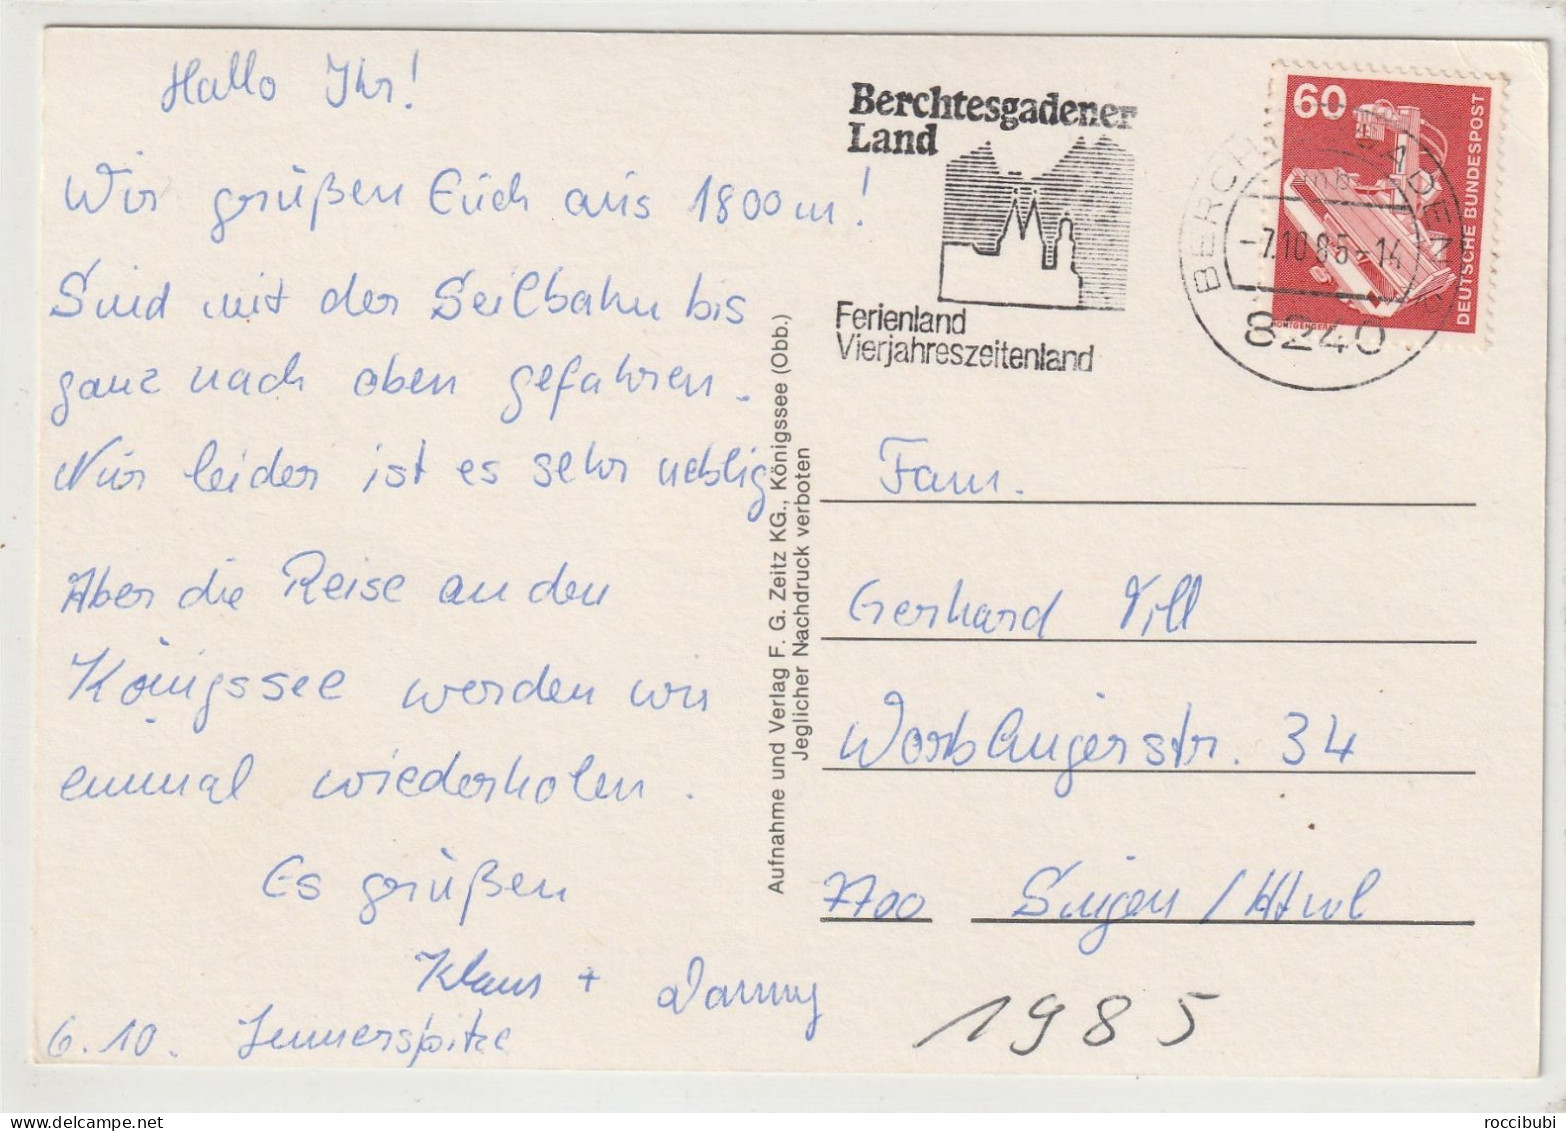 Hallo Ihr!
Wir grüßen Euch aus 1800m!
Sind mit der Seilbahn bis
ganz nach oben gefahren.
Nur leider ist es sehr neblig
Aber die Reise an den
Königssee werden wir
einmal wiederholen.
Es grüßen
Klaus + Danny
6.10. Jennerspitze
Aufnahme und Verlag F. G. Zeitz KG., Königssee (Obb.)
Jeglicher Nachdruck verboten
Berchtesgadener
Land
Ferienland
Vierjahreszeitenland
60
DEUTSCHE BUNDESPOST
-7.10.85-14
8240
Fam.
Gerhard Vill
34
7700 Singen / Htwl
1985
roccibubi